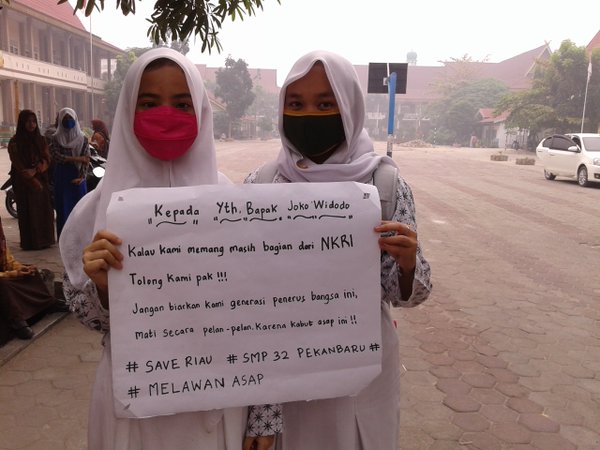 "Kepada Yth. Bapak Joko Widodo"
Kalau kami memang masih bagian dari NKRI
Tolong Kami pak !!!
Jangan biarkan kami generasi penerus bangsa ini,
mati secara pelan-pelan. Karena kabut asap ini !!
# SAVE RIAU # SMP 32 PEKANBARU #
# MELAWAN ASAP